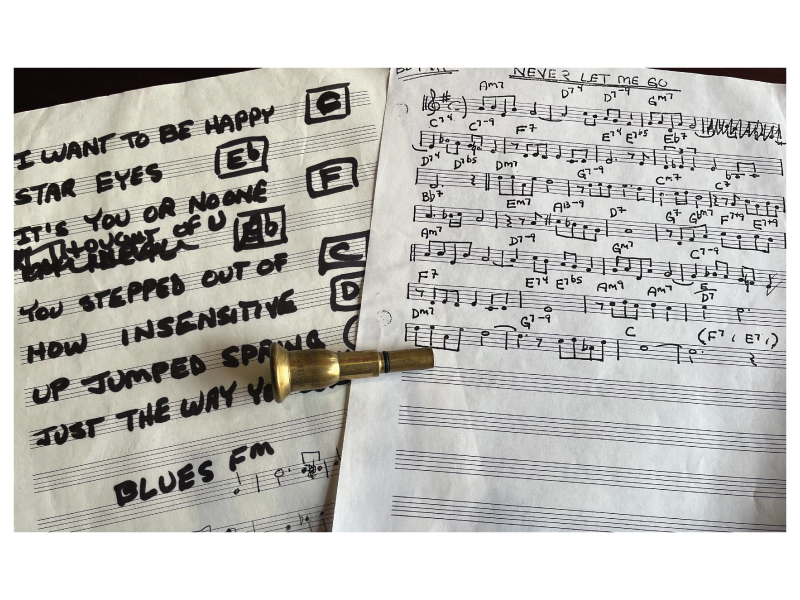 I WANT TO BE HAPPY
STAR EYES Eb
IT'S YOU OR NO ONE F
THOUGHT OF U Ab
YOU STEPPED OUT OF C
HOW INSENSITIVE D
UP JUMPED SPRING
JUST THE WAY
BLUES Fm
NEVER LET ME GO
Am7 D7 4 D7-9 Gm7
C7 4 C7-9 F7 E7 4 E7b5 Eb7
D7 4 D7b5 Dm7 G7-9 Cm7 C7
Bb7 Em7 A13-9 D7 G7 Gbm7 F7+9 E7+9
Am7 D7-9 Gm7 C7-9
F7 E7 4 E7b5 Am9 Am7 D7
Dm7 G7-9 C (F7, E7,)